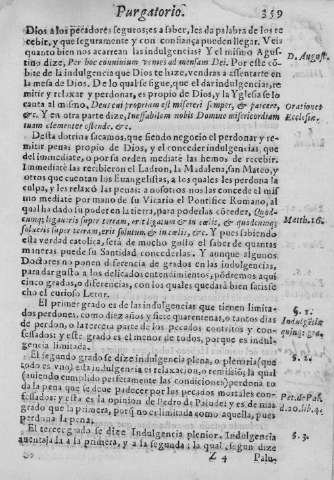 Purgatorio. 359
Dios a los pecadores seguros, es a saber, les da palabra de los re-
cebir, y que seguramente y con confiança pueden llegar. Veis
quanto bien nos acarrean las indulgencias? Y el mismo Agus-
tino dize, Per hoc conuiuium venies ad mensam Dei. Por este cō-
bite de la indulgencia que Dios te haze, vendras a assentarte en
la mesa de Dios. De lo qual se sigue, que el dar indulgencias, re-
mitir y relaxar y perdonar, es propio de Dios, y la Yglesia se lo
canta al mismo, Deus cui proprium est misereri semper, & parcere,
&c. Y en otra parte dize, Ineffabilem nobis Domine misericordiam
tuam clementer ostende, &c.
Desta dotrina sacamos, que siendo negocio el perdonar y re-
mitir penas propio de Dios, y el conceder indulgencias, que
del immediate, o por su orden mediate las hemos de recebir.
Immediate las recibieron el Ladron, la Madalena, san Mateo, y
otros que cuentan los Euangelistas, a los quales les perdona la
culpa, y les relaxò las penas: a nosotros nos las concede el mis
mo mediate por mano de su Vicario el Pontifice Romano, al
qual ha dado su poder en la tierra, para poderlas cōceder, Quod-
cunq; ligaueris super terram, erit ligatum & in cœlis, & quodcunq;
solueris super terram, erit solutum & in cœlis, &c. Y pues sabiendo
esta verdad catolica, serà de mucho gusto el saber de quantas
maneras puede su Santidad concederlas. Y aunque algunos
Doctores no ponen diferencia de grados en las indulgencias,
para dar gusto a los delicados entendimientos, pōdremos aqui
cinco grados, o diferencias, con los quales quedarà bien satisfe
cho el curioso Letor.
El primer grado es de las indulgencias que tienen limita-
dos perdones, como diez años y siete quarentenas, o tantos dias
de perdon, o la tercera parte de los pecados contritos y con-
fessados: y este grado es el menor de todos, porque es indul-
gencia limitada.
El segundo grado se dize indulgencia plena, o plenaria (que
todo es vno) esta indulgencia es relaxacion, o remissiō, la qual
(auiendo cumplido perfectamente las condiciones) perdona to
da la pena que se deue padecer por los pecados mortales con-
fessados: y esta es la opinion de Pedro de Palude: y es de mas
grado que la primera, porq̃ no es limitada como aquella, pues
perdona la pena.
El tercer grado se dize Indulgencia plenior. Indulgencia
auentajada a la primera, y a la segunda: la qual segun dize
Z 4 Palu-
D. August.
Orationes
Ecclesiæ.
Matth. 16.
§. 1.
§. 2.
Pet. de Pal.
§. 3.